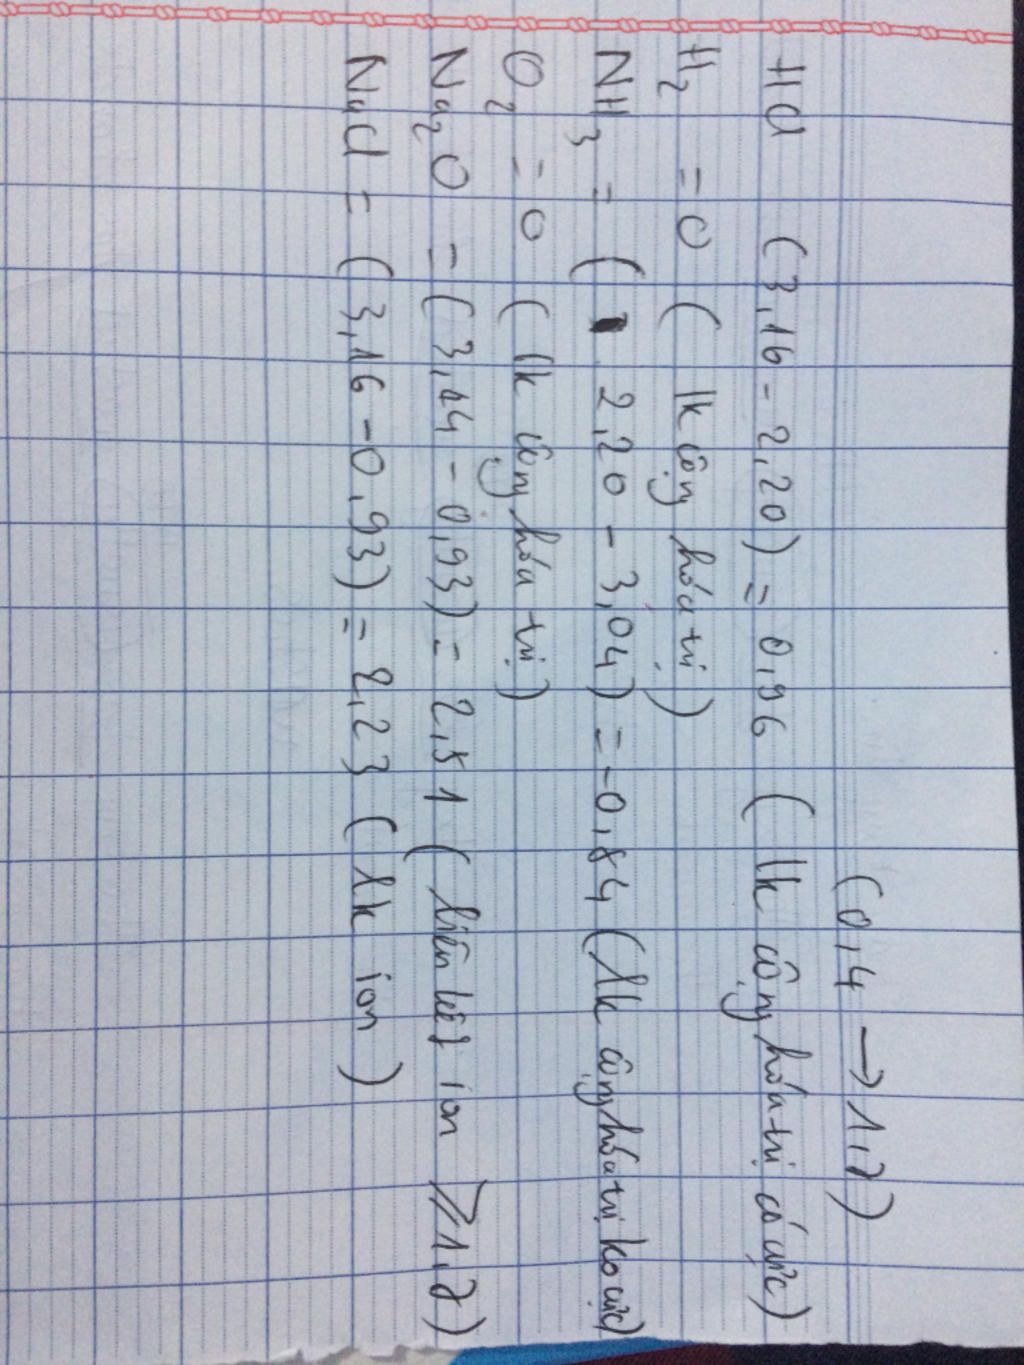 (0,4 → 1,7)
HCl (3,16 - 2,20) = 0,96 (lk cộng hóa trị có cực)
H₂ = 0 ( lk cộng hóa trị )
NH₃ = ( 2,20 - 3,04) = -0,84 (lk cộng hóa trị ko cực)
O₂ = 0 ( lk cộng hóa trị )
Na₂O = (3,44 - 0,93) = 2,51 ( liên kết ion ⩾1,7)
NaCl = (3,16 - 0,93) = 2,23 ( lk ion )